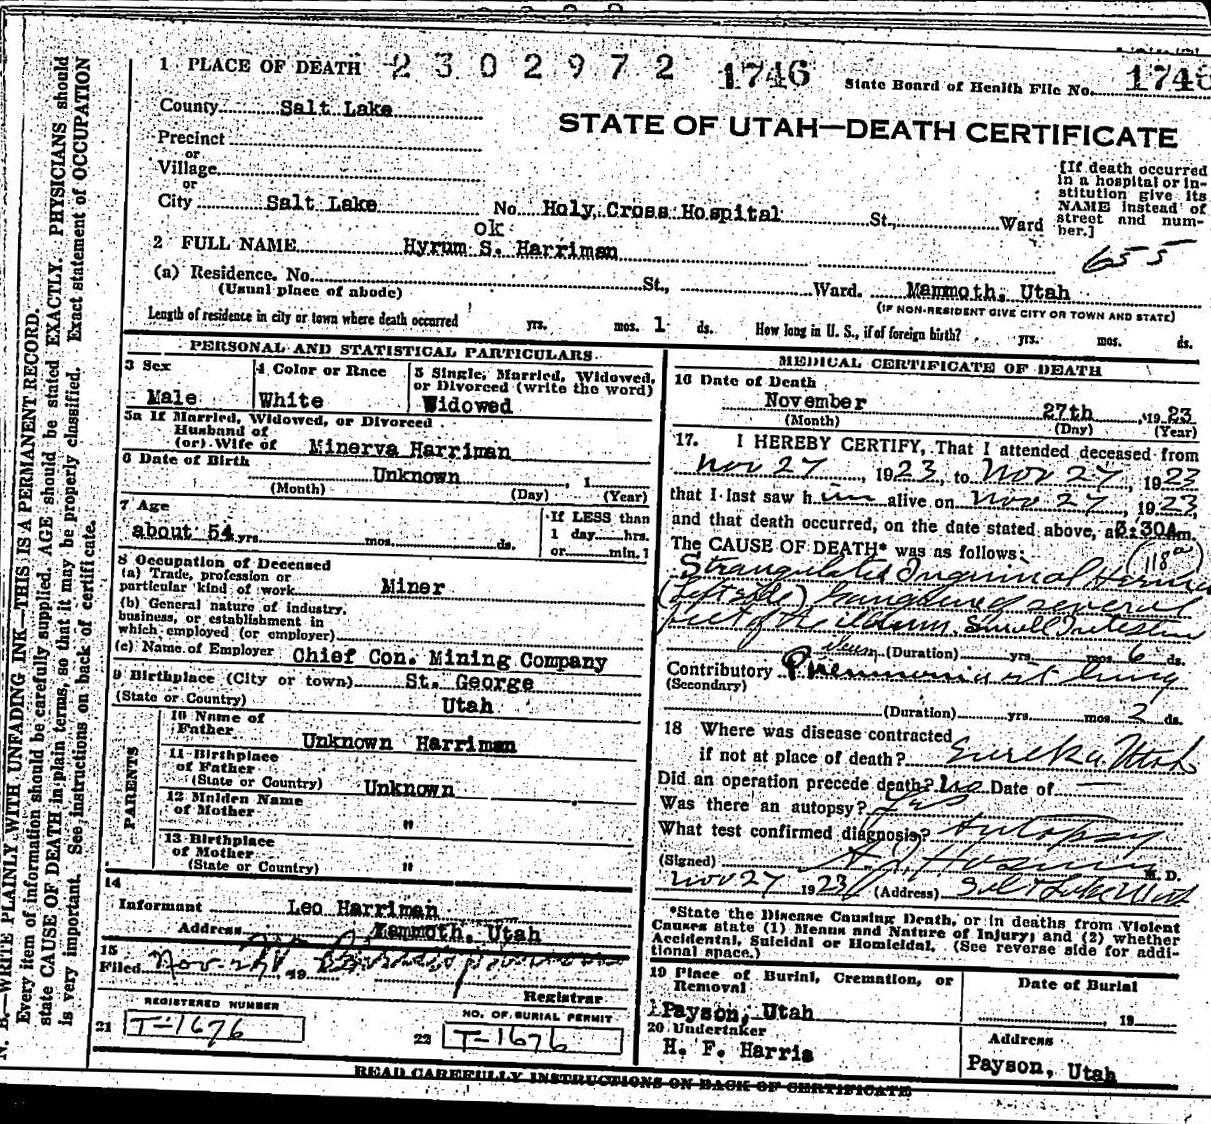 1 PLACE OF DEATH 2302972 1746 State Board of Health File No. 1746
County Salt Lake
STATE OF UTAH—DEATH CERTIFICATE
Precinct
or
Village
or
City Salt Lake No. Holy Cross Hospital St., Ward
[If death occurred
in a hospital or in-
stitution give its
NAME instead of
street and num-
ber.]
ok
2 FULL NAME Hyrum S. Harriman
655
(a) Residence. No. St., Ward. Mammoth, Utah
(Usual place of abode) (IF NON-RESIDENT GIVE CITY OR TOWN AND STATE)
Length of residence in city or town where death occurred yrs. mos. 1 ds. How long in U. S., if of foreign birth? yrs. mos. ds.
PERSONAL AND STATISTICAL PARTICULARS
3 Sex
Male
4 Color or Race
White
5 Single, Married, Widowed,
or Divorced (write the word)
Widowed
5a If Married, Widowed, or Divorced
Husband of
(or) Wife of Minerva Harriman
6 Date of Birth
Unknown , 1
(Month) (Day) (Year)
7 Age
about 54 yrs. mos. ds.
If LESS than
1 day hrs.
or min.?
8 Occupation of Deceased
(a) Trade, profession or
particular kind of work Miner
(b) General nature of industry,
business, or establishment in
which employed (or employer)
(c) Name of Employer Chief Con. Mining Company
9 Birthplace (City or town) St. George
(State or Country) Utah
PARENTS
10 Name of
Father Unknown Harriman
11 Birthplace
of Father
(State or Country) Unknown
12 Maiden Name
of Mother "
13 Birthplace
of Mother
(State or Country) "
14
Informant Leo Harriman
Address Mammoth, Utah
15
Filed Nov. 19
Registrar
REGISTERED NUMBER
21 T-1676
NO. OF BURIAL PERMIT
22 T-1676
MEDICAL CERTIFICATE OF DEATH
16 Date of Death
November 27th , 19 23
(Month) (Day) (Year)
17. I HEREBY CERTIFY, That I attended deceased from
Nov 27 , 1923, to Nov 27 , 1923
that I last saw him alive on Nov 27 , 1923,
and that death occurred, on the date stated above, at 3:30A m.
The CAUSE OF DEATH* was as follows: 118a
Strangulated Inguinal Hernia
(Left side) Gangrene of several
feet of the ileum, Small Intestine
(Duration) yrs. mos. 6 ds.
Contributory Pneumonia rt lung
(Secondary)
(Duration) yrs. mos. 2 ds.
18 Where was disease contracted
if not at place of death? Eureka Utah
Did an operation precede death? Date of
Was there an autopsy? Yes
What test confirmed diagnosis? Autopsy
(Signed) M. D.
Nov 27 1923 (Address) Salt Lake Utah
*State the Disease Causing Death, or in deaths from Violent
Causes state (1) Means and Nature of Injury; and (2) whether
Accidental, Suicidal or Homicidal. (See reverse side for addi-
tional space.)
19 Place of Burial, Cremation, or
Removal
Payson, Utah
Date of Burial
, 19
20 Undertaker
H. F. Harris
Address
Payson, Utah
READ CAREFULLY INSTRUCTIONS ON BACK OF CERTIFICATE
N. B.—WRITE PLAINLY WITH UNFADING INK—THIS IS A PERMANENT RECORD.
Every item of information should be carefully supplied. AGE should be stated EXACTLY. PHYSICIANS should
state CAUSE OF DEATH in plain terms, so that it may be properly classified. Exact statement of OCCUPATION
is very important. See instructions on back of certificate.